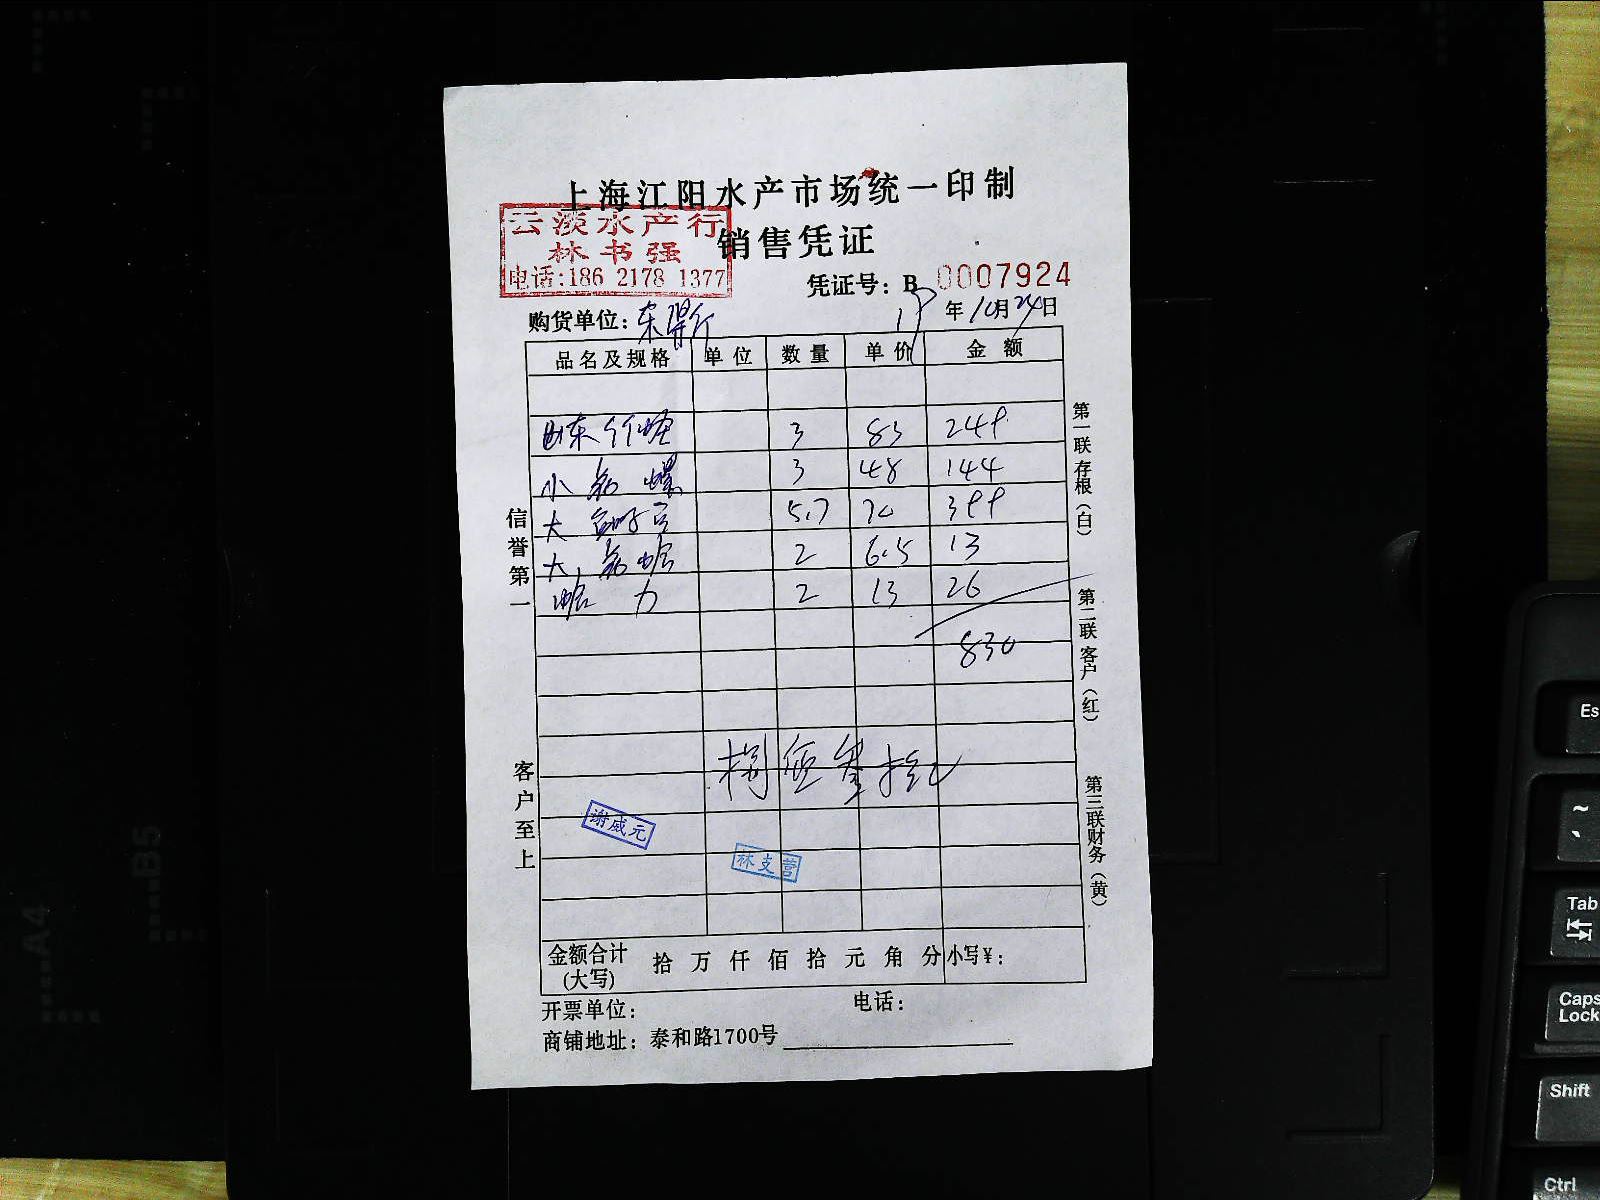 上海江阳水产市场统一印制
销售凭证
云淡水产行
林书强
电话:186 2178 1377
凭证号：B 0007924
购货单位：东
年10月24日
品名及规格 单位 数量 单价 金额
山东竹蛏 3 83 249
小 螺 3 48 144
大 5.7 70 399
大 2 6.5 13
蛤 力 2 13 26
830
捌佰叁拾元
谢威元
林支营
金额合计(大写) 拾 万 仟 佰 拾 元 角 分 小写¥：
开票单位： 电话：
商铺地址：泰和路1700号
信誉第一
客户至上
第一联存根(白)
第二联客户(红)
第三联财务(黄)
A4
B5
Es
~
Tab
Caps Lock
Shift
Ctrl